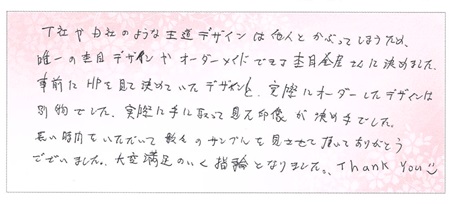 T社やカ社のような王道デザインは他人とかぶってしまうため、
唯一の杢目デザインやオーダーメイドできる杢目金屋さんに決めました。
事前にHPを見て決めていたデザインと、実際にオーダーしたデザインは
別物でした。実際に手に取って見た印象が決め手でした。
長い時間をいただいて数々のサンプルを見させて頂いてありがとう
ございました。大変満足のいく指輪となりました。Thank You